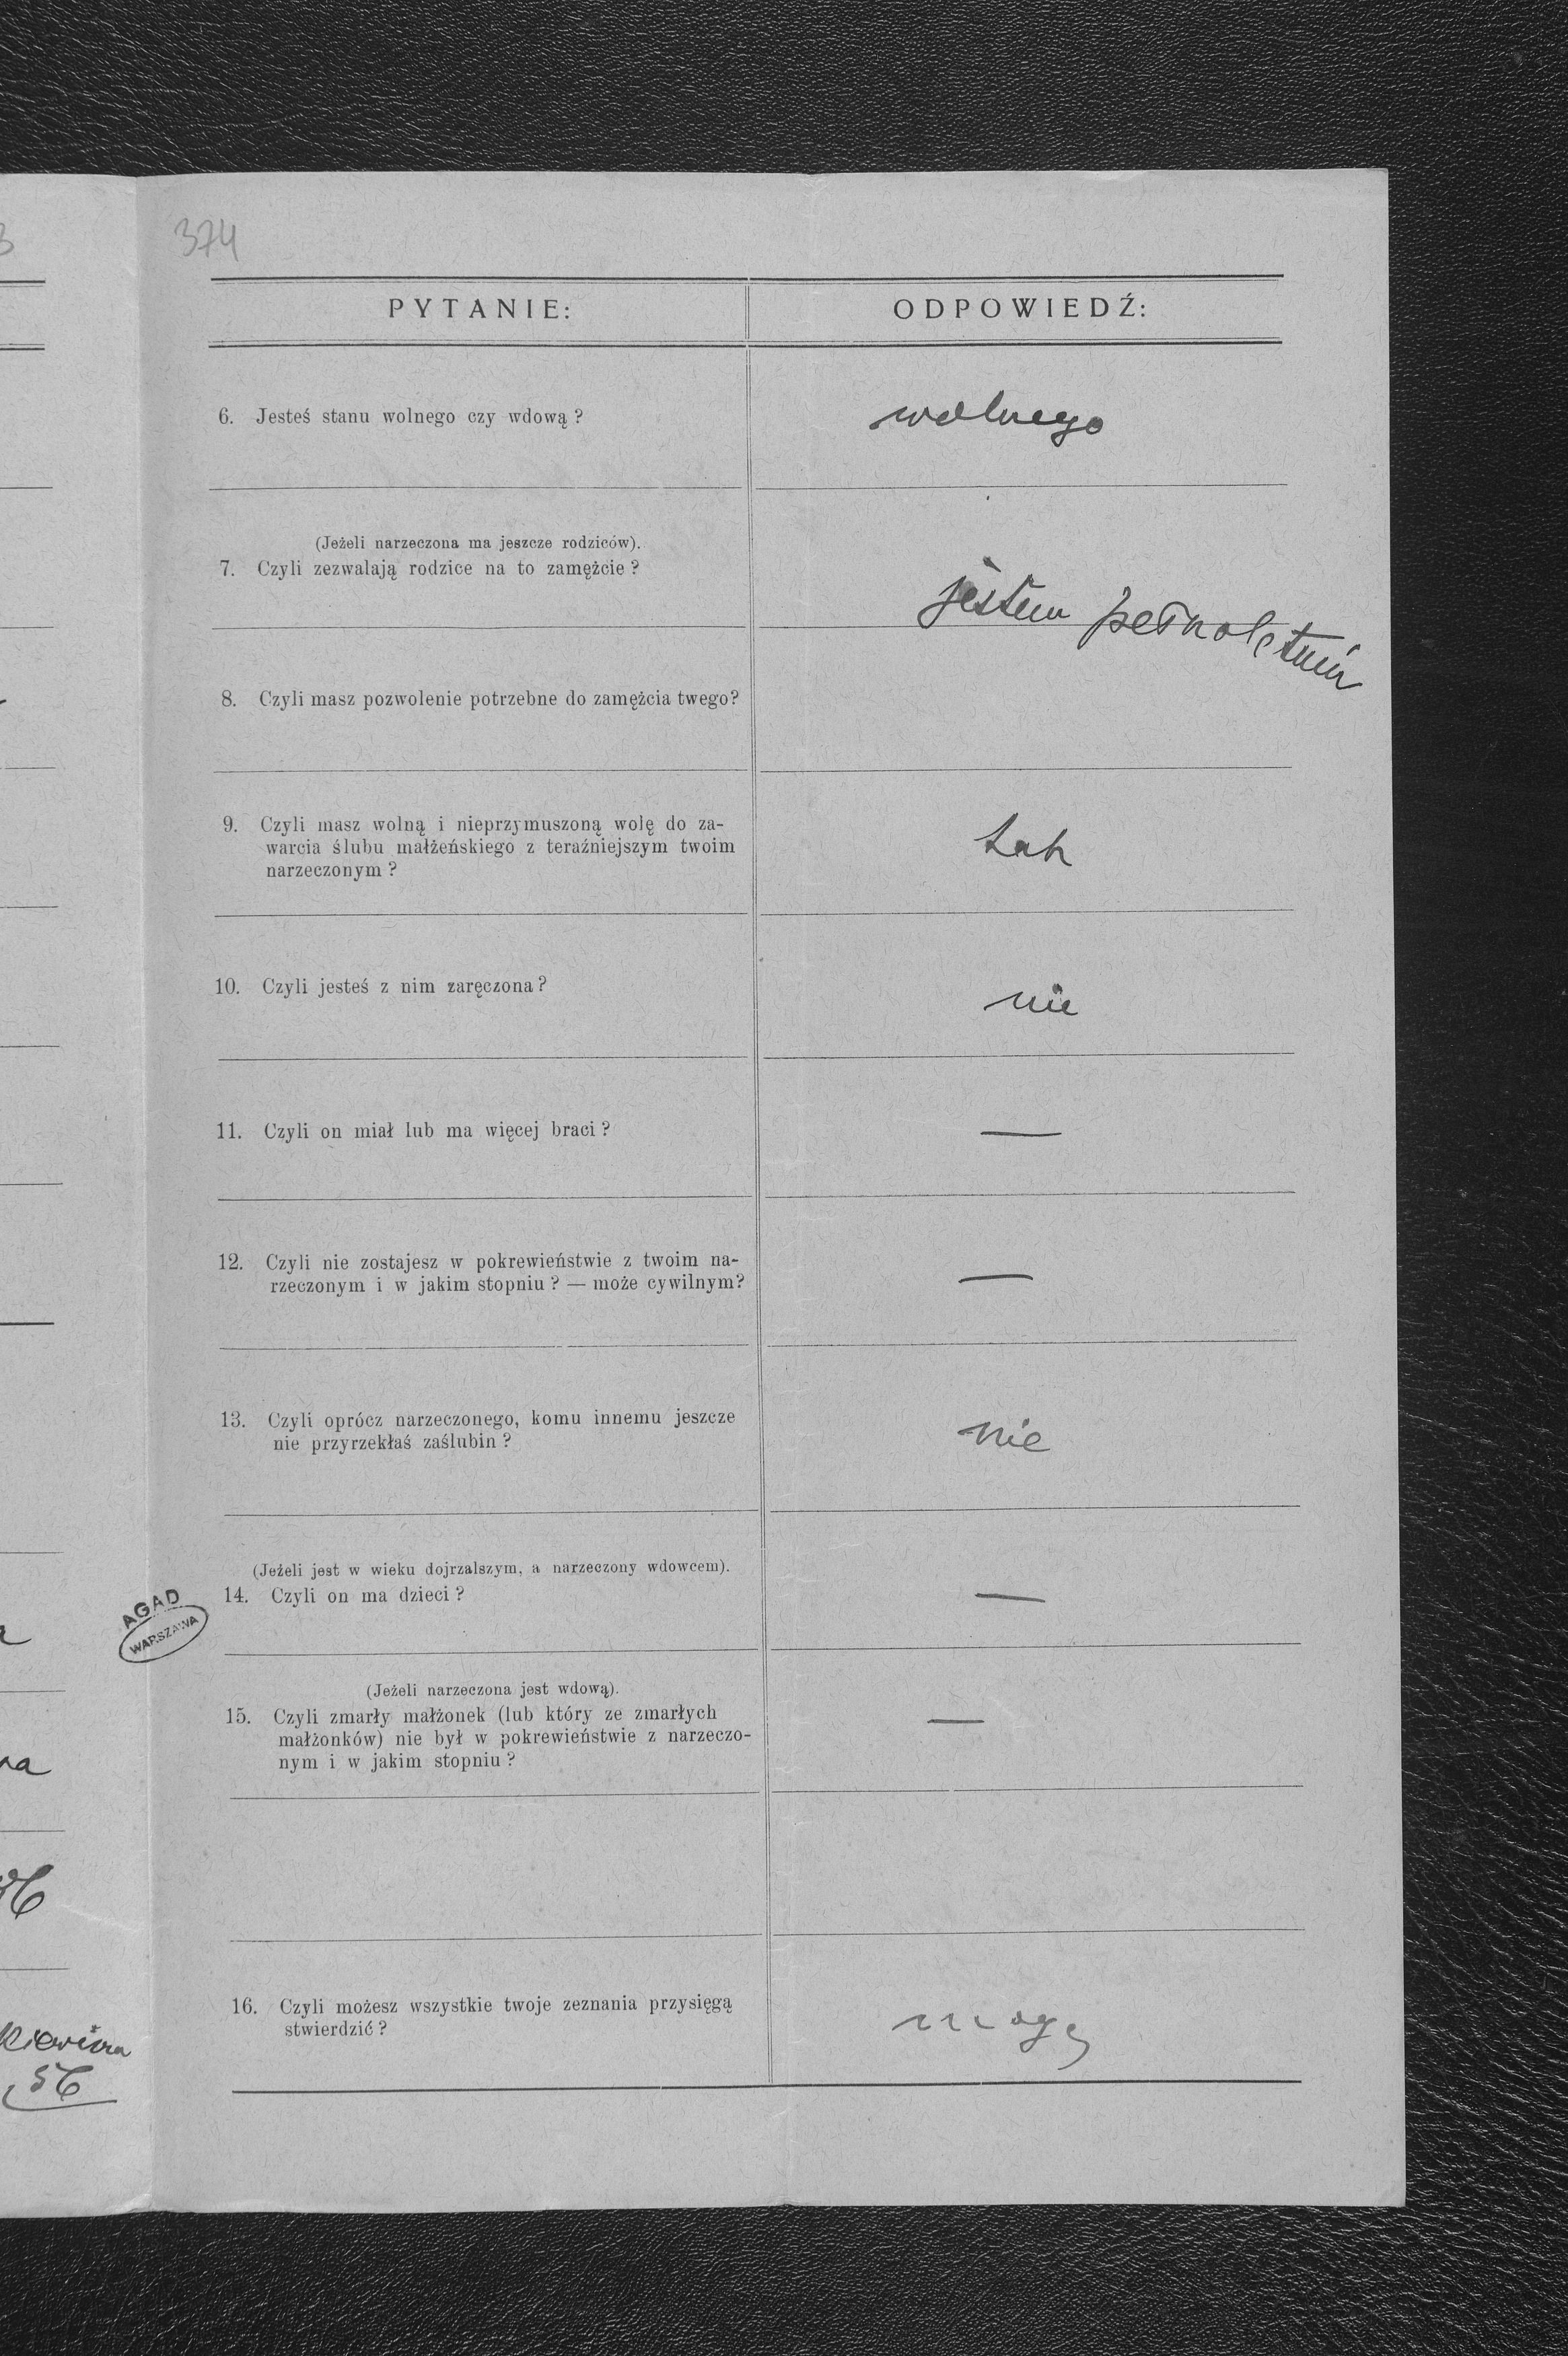 374
PYTANIE:
ODPOWIEDŹ:
6. Jesteś stanu wolnego czy wdową ?
wolnego
(Jeżeli narzeczona ma jeszcze rodziców).
7. Czyli zezwalają rodzice na to zamężcie ?
jestem pełnoletnia
8. Czyli masz pozwolenie potrzebne do zamężcia twego?
9. Czyli masz wolną i nieprzymuszoną wolę do za-
warcia ślubu małżeńskiego z teraźniejszym twoim
narzeczonym ?
tak
10. Czyli jesteś z nim zaręczona ?
nie
11. Czyli on miał lub ma więcej braci ?
—
12. Czyli nie zostajesz w pokrewieństwie z twoim na-
rzeczonym i w jakim stopniu ? — może cywilnym?
—
13. Czyli oprócz narzeczonego, komu innemu jeszcze
nie przyrzekłaś zaślubin ?
nie
(Jeżeli jest w wieku dojrzalszym, a narzeczony wdowcem).
14. Czyli on ma dzieci ?
—
AGAD
WARSZAWA
(Jeżeli narzeczona jest wdową).
15. Czyli zmarły małżonek (lub który ze zmarłych
małżonków) nie był w pokrewieństwie z narzeczo-
nym i w jakim stopniu ?
—
16. Czyli możesz wszystkie twoje zeznania przysięgą
stwierdzić ?
mogę
56